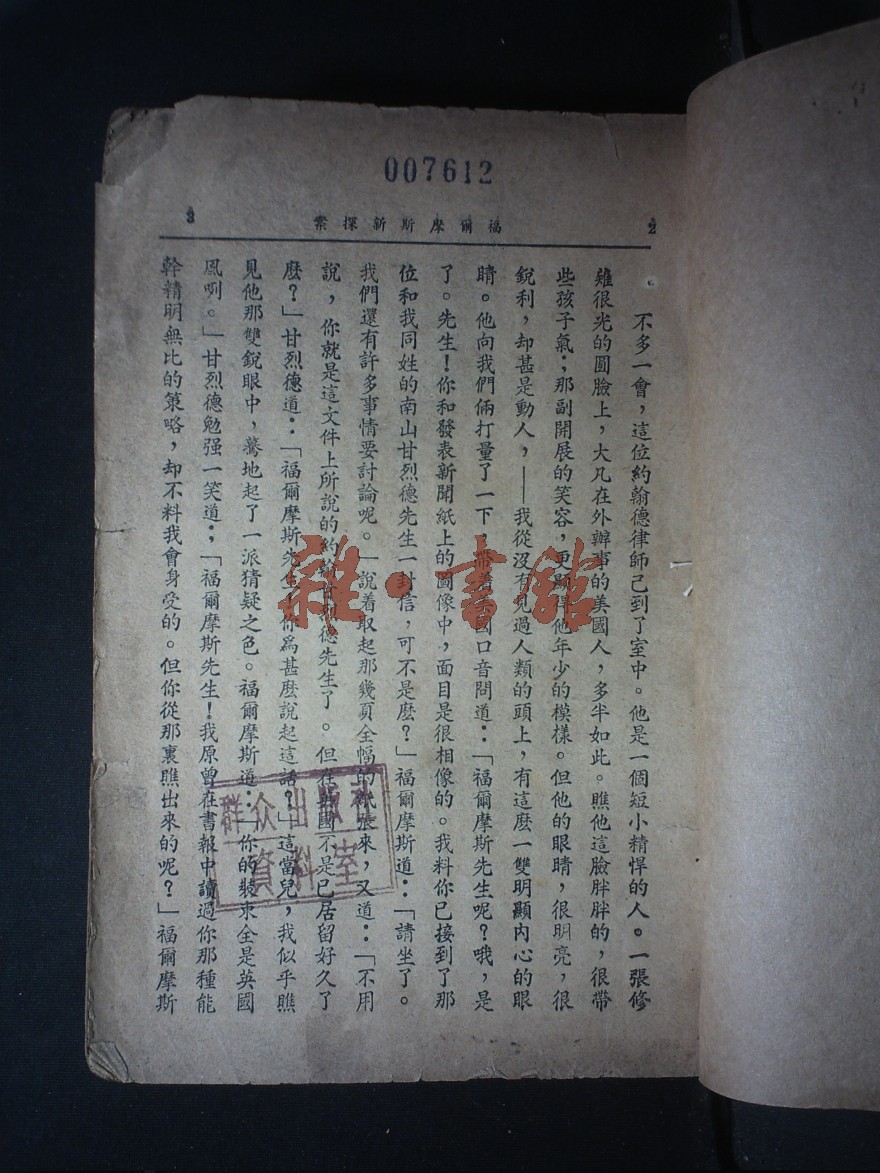 007612
福爾摩斯新探案
2
3
不多一會，這位約翰德律師已到了室中。他是一個短小精悍的人。一張修
雖很光的圓臉上，大凡在外辦事的美國人，多半如此。瞧他這臉胖胖的，很帶
些孩子氣；那副開展的笑容，更顯得他年少的模樣。但他的眼睛，很明亮，很
銳利，却甚是動人，——我從沒有見過人類的頭上，有這麽一雙明顯內心的眼
睛。他向我們倆打量了一下，帶着美國口音問道：「福爾摩斯先生呢？哦，是
了。先生！你和發表新聞紙上的圖像中，面目是很相像的。我料你已接到了那
位和我同姓的南山甘烈德先生一封信，可不是麽？」福爾摩斯道：「請坐了。
我們還有許多事情要討論呢。」說着取起那幾頁全幅的紙張來，又道：「不用
說，你就是這文件上所說的約翰甘烈德先生了。但在英國不是已居留好久了
麽？」甘烈德道：「福爾摩斯先生！你爲甚麽說起這話？」這當兒，我似乎瞧
見他那雙銳眼中，驀地起了一派猜疑之色。福爾摩斯道：「你的裝束全是英國
風咧。」甘烈德勉强一笑道；「福爾摩斯先生！我原曾在書報中讀過你那種能
幹精明無比的策略，却不料我會身受的。但你從那裏瞧出來的呢？」福爾摩斯
雜·書館
群众出版社
資料室